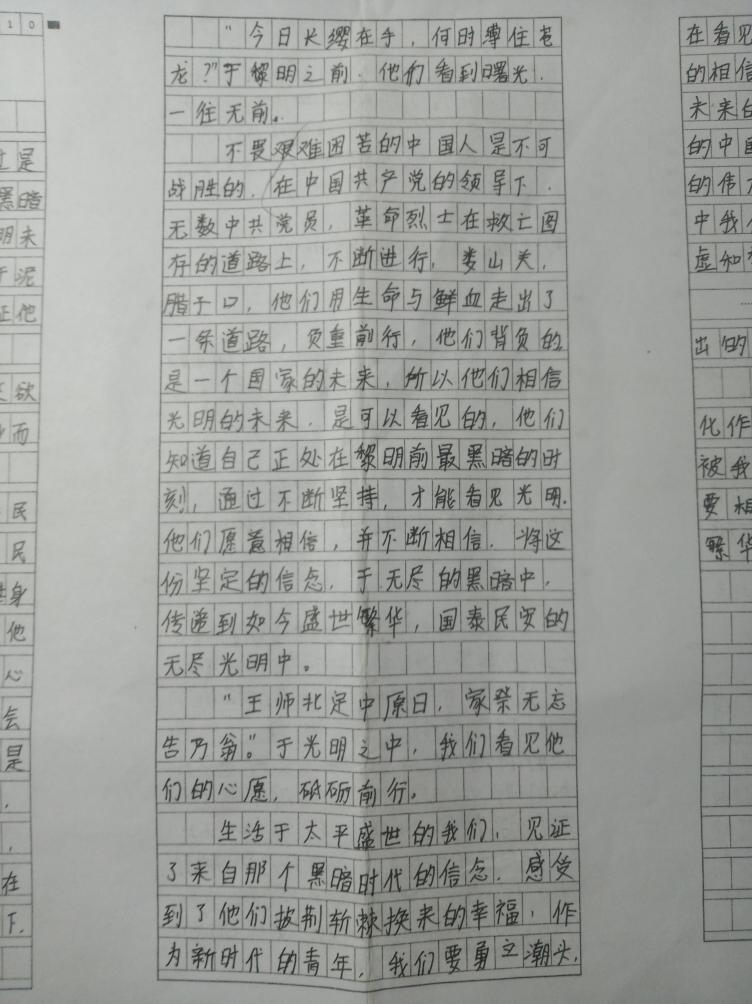 10
过是
黑暗
明未
于泥
证他
欲
而
民
民
身
他
心
会
是
，
，
在
下.
“今日长缨在手，何时缚住苍
龙？”于黎明之前.他们看到曙光.
一往无前。
不畏艰难困苦的中国人是不可
战胜的.在中国共产党的领导下.
无数中共党员，革命烈士在救亡图
存的道路上，不断进行，娄山关，
腊子口，他们用生命与鲜血走出了
一条道路，负重前行，他们背负的
是一个国家的未来，所以他们相信
光明的未来.是可以看见的，他们
知道自己正处在黎明前最黑暗的时
刻，通过不断坚持，才能看见光明.
他们愿意相信，并不断相信.将这
份坚定的信念.于无尽的黑暗中，
传递到如今盛世繁华，国泰民安的
无尽光明中。
“王师北定中原日，家祭无忘
告乃翁。”于光明之中，我们看见他
们的心愿，砥砺前行。
生活于太平盛世的我们，见证
了来自那个黑暗时代的信念.感受
到了他们披荆斩棘换来的幸福，作
为新时代的青年，我们要勇立潮头，
在看见
的相信
未来的
的中国
的伟大
中我们
虚如
出的
化作
被我
要相
繁华